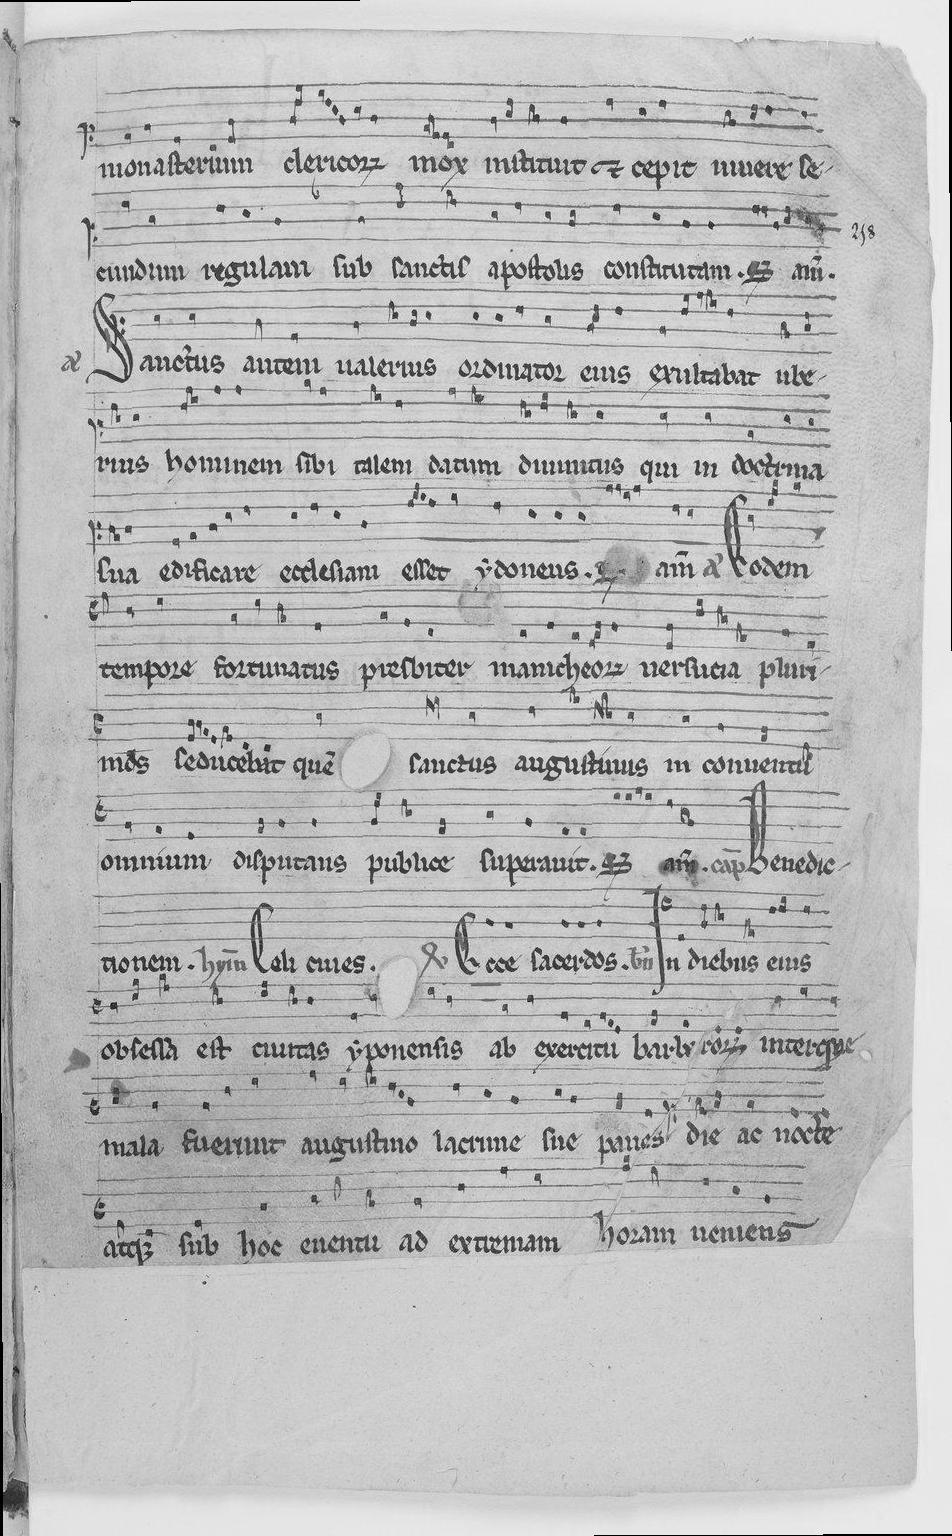 monasterium clericoꝝ mox instituit ⁊ cepit uiuere se-
cundum regulam sub sanctis apostolis constitutam. Ps am̄.
218
a͛ Sanctus autem ualerius ordinator eius exultabat ube-
rius hominem sibi talem datum diuinitus qui in doctrina
sua edificare ecclesiam esset ẏdoneus. am̄ a͛ Eodem
tempore fortunatus presbiter manicheoꝝ uersucia pluri-
mos seducebat quē sanctus augustinus in conuentu
omnium disputans publice superauit. Ps am̄. cap̄ Benedic-
tionem. hym̄ Celi ciues. ℣ Ecce sacerdos. In diebus eius
obsessa est ciuitas ẏponensis ab exercitu barbaroꝝ interque
mala fuerunt augustino lacrime sue panes die ac nocte
atqꝫ sub hoc euentu ad extremam horam ueniens